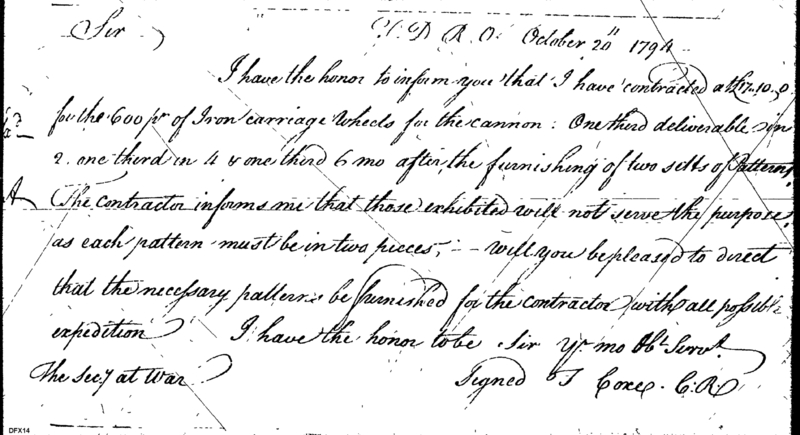 Sir T. D. R. O. October 20" 1794
I have the honor to inform you that I have contracted at £17..10..0
for the 600 pr of Iron carriage wheels for the cannon: One third deliverable in
2. one third in 4 & one third 6 mo after the furnishing of two setts of Patterns,
A The contractor informs me that those exhibited will not serve the purpose,
as each pattern must be in two pieces, - - will you be pleased to direct
that the necessary patterns be furnished for the contractor with all possible
expedition I have the honor to be Sir Yr mo Obt Servt.
The Secy at War Signed T Coxe. C. R.
DFX14